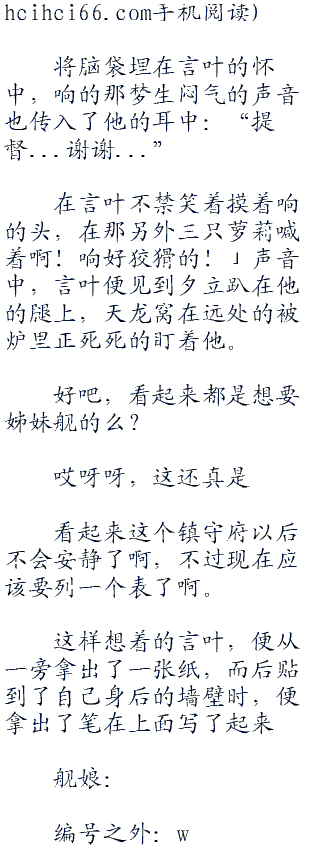 hcihci66.com手机阅读)
将脑袋埋在言叶的怀
中，响的那梦生闷气的声音
也传入了他的耳中：“提
督...谢谢...”
在言叶不禁笑着摸着响
的头，在那另外三只萝莉喊
着啊！响好狡猾的！」声音
中，言叶便见到夕立趴在他
的腿上，天龙窝在远处的被
炉里正死死的盯着他。
好吧，看起来都是想要
姊妹舰的么？
哎呀呀，这还真是
看起来这个镇守府以后
不会安静了啊，不过现在应
该要列一个表了啊。
这样想着的言叶，便从
一旁拿出了一张纸，而后贴
到了自己身后的墙壁时，便
拿出了笔在上面写了起来
舰娘：
编号之外：w